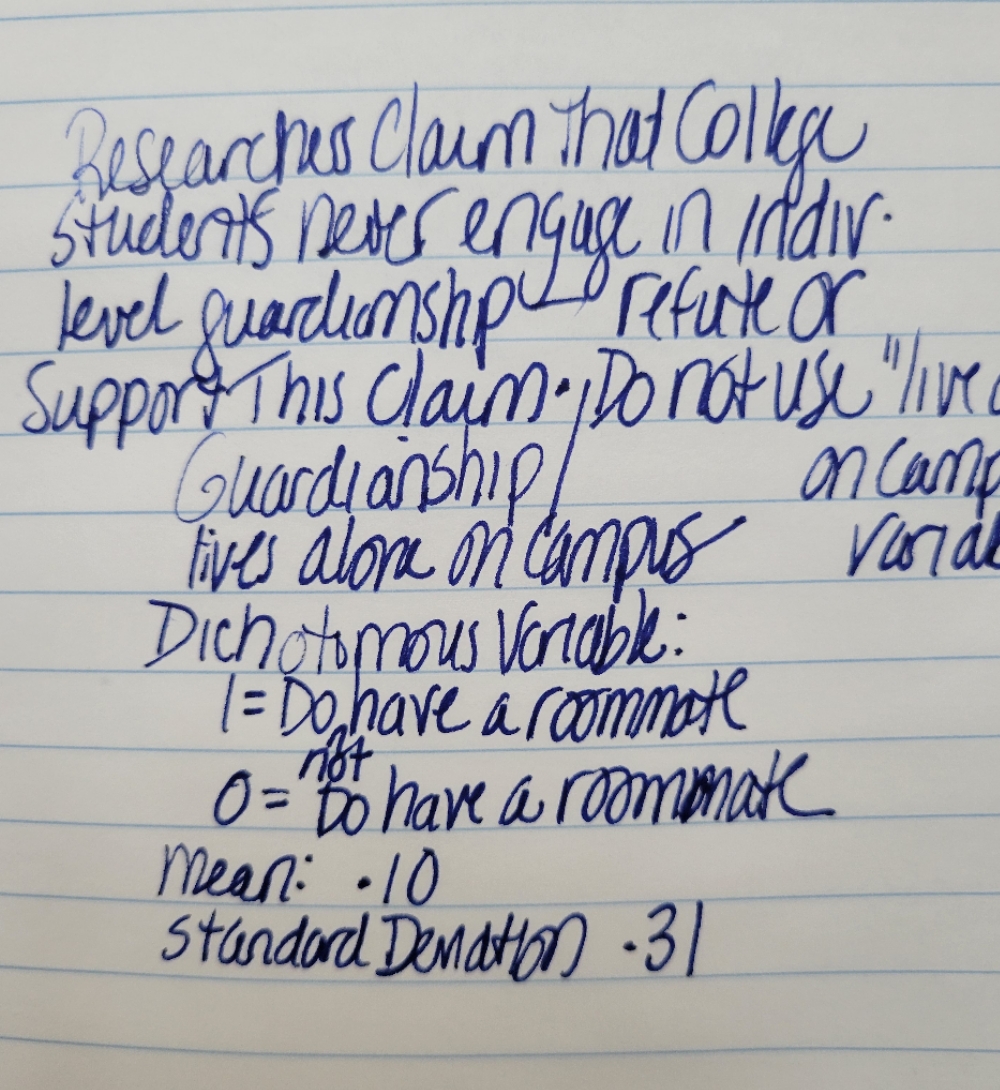 Researchers Claim that College
students never engage in indiv.
level guardianship refute or
Support This Claim. Do not use "live
Guardianship on camp
lives alone on campus variab
Dichotomous Variable:
1= Do not have a roommate
0= Do have a roommate
Mean: .10
Standard Deviation .31